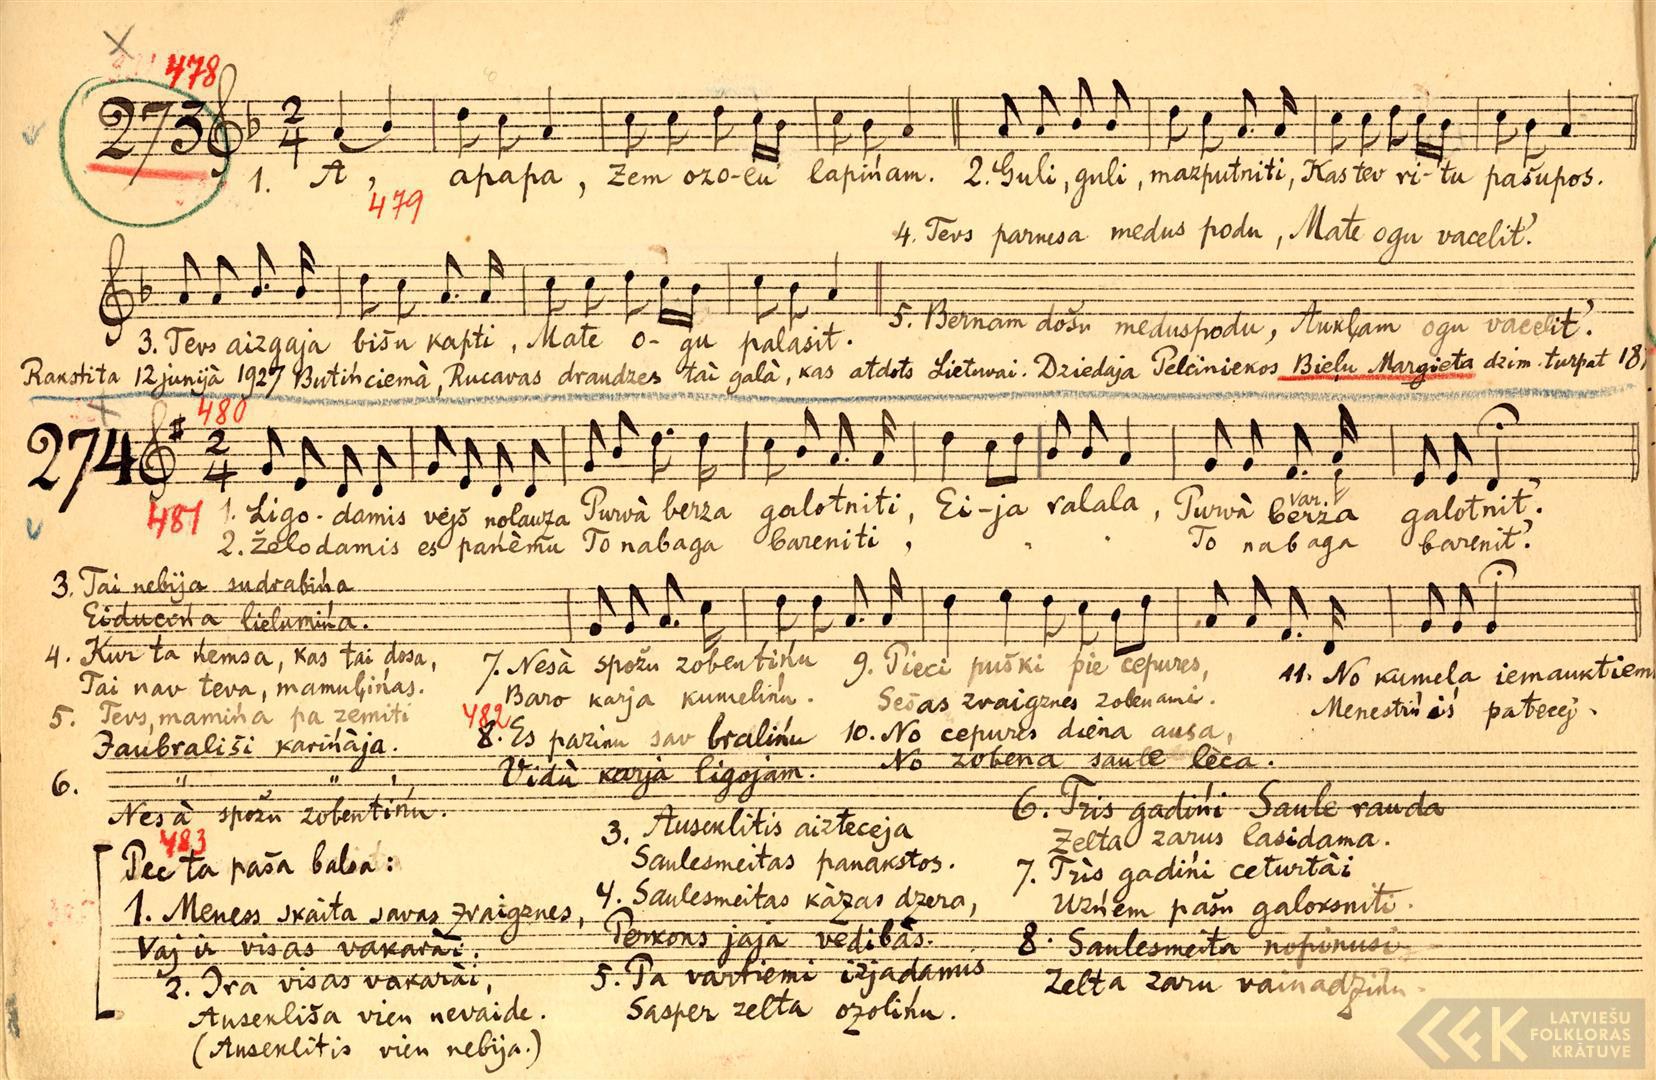 478
273
2
4
1. A, apapa, Zem ozo-lu lapińam. 2. Guli, guli, mazputniti, Kas tev ri-tu pašupos.
479
4. Tevs parnesa medus podu, Mate ogu vacelit'.
3. Tevs aizgaja bišu kapti, Mate o-gu palasit.
5. Bernam došu meduspodu, Aukļam ogu vacelit'.
Rakstita 12 junijà 1927 Butińciemà, Rucavas draudzes tai galà, kas atdots Lietuvai. Dziedaja Pelčiniekos Bieļu Margieta dzim. turpat 18
480
274
2
4
481
1. Ligo-damis vėjš nolauza Purvà berza galotniti, Ei-ja ralala, Purvà berza galotnit'.
var.
2. Želodamis es pańèmu To nabaga bareniti, " " To nabaga barenit'.
3. Tai nebija sudrabińa
Eiducena lielumińa.
4. Kur ta ńemsa, kas tai dosa,
Tai nav teva, mamulińas.
5. Tevs, mamińa pa zemiti
Jaubrališi karińàja.
6. " " "
Nesà spožu zobentińu.
7. Nesà spožu zobentińu
Baro karja kumelińu.
482
8. Es pazinu sav bralińu
Vidù karjà ligojam.
9. Pieci puški pie cepures,
Sešas zvaigznes zobenami.
10. No cepures diena ausa,
No zobena saule lèca.
11. No kumela iemauktiem
Menestińiš patecej.
483
Pec ta paša balsa:
1. Meness skaita savas zvaigznes,
Vaj ir visas vakarài.
2. Ira visas vakarài,
Ausekliša vien nevaide.
(Auseklitis vien nebija.)
3. Auseklitis aizteceja
Saulesmeitas panakstos.
4. Saulesmeitas kàzas dzera,
Perkons jaja vedibàs.
5. Pa vartiemi izjadamis
Sasper zelta ozolińu.
6. Tris gadińi Saule rauda
Zelta zarus lasidama.
7. Tris gadińi ceturtài
Uzńem pašu galoksniti.
8. Saulesmeita nopinusi
Zelta zaru vainadzińu.
LATVIEŠU
FOLKLORAS
KRĀTUVE